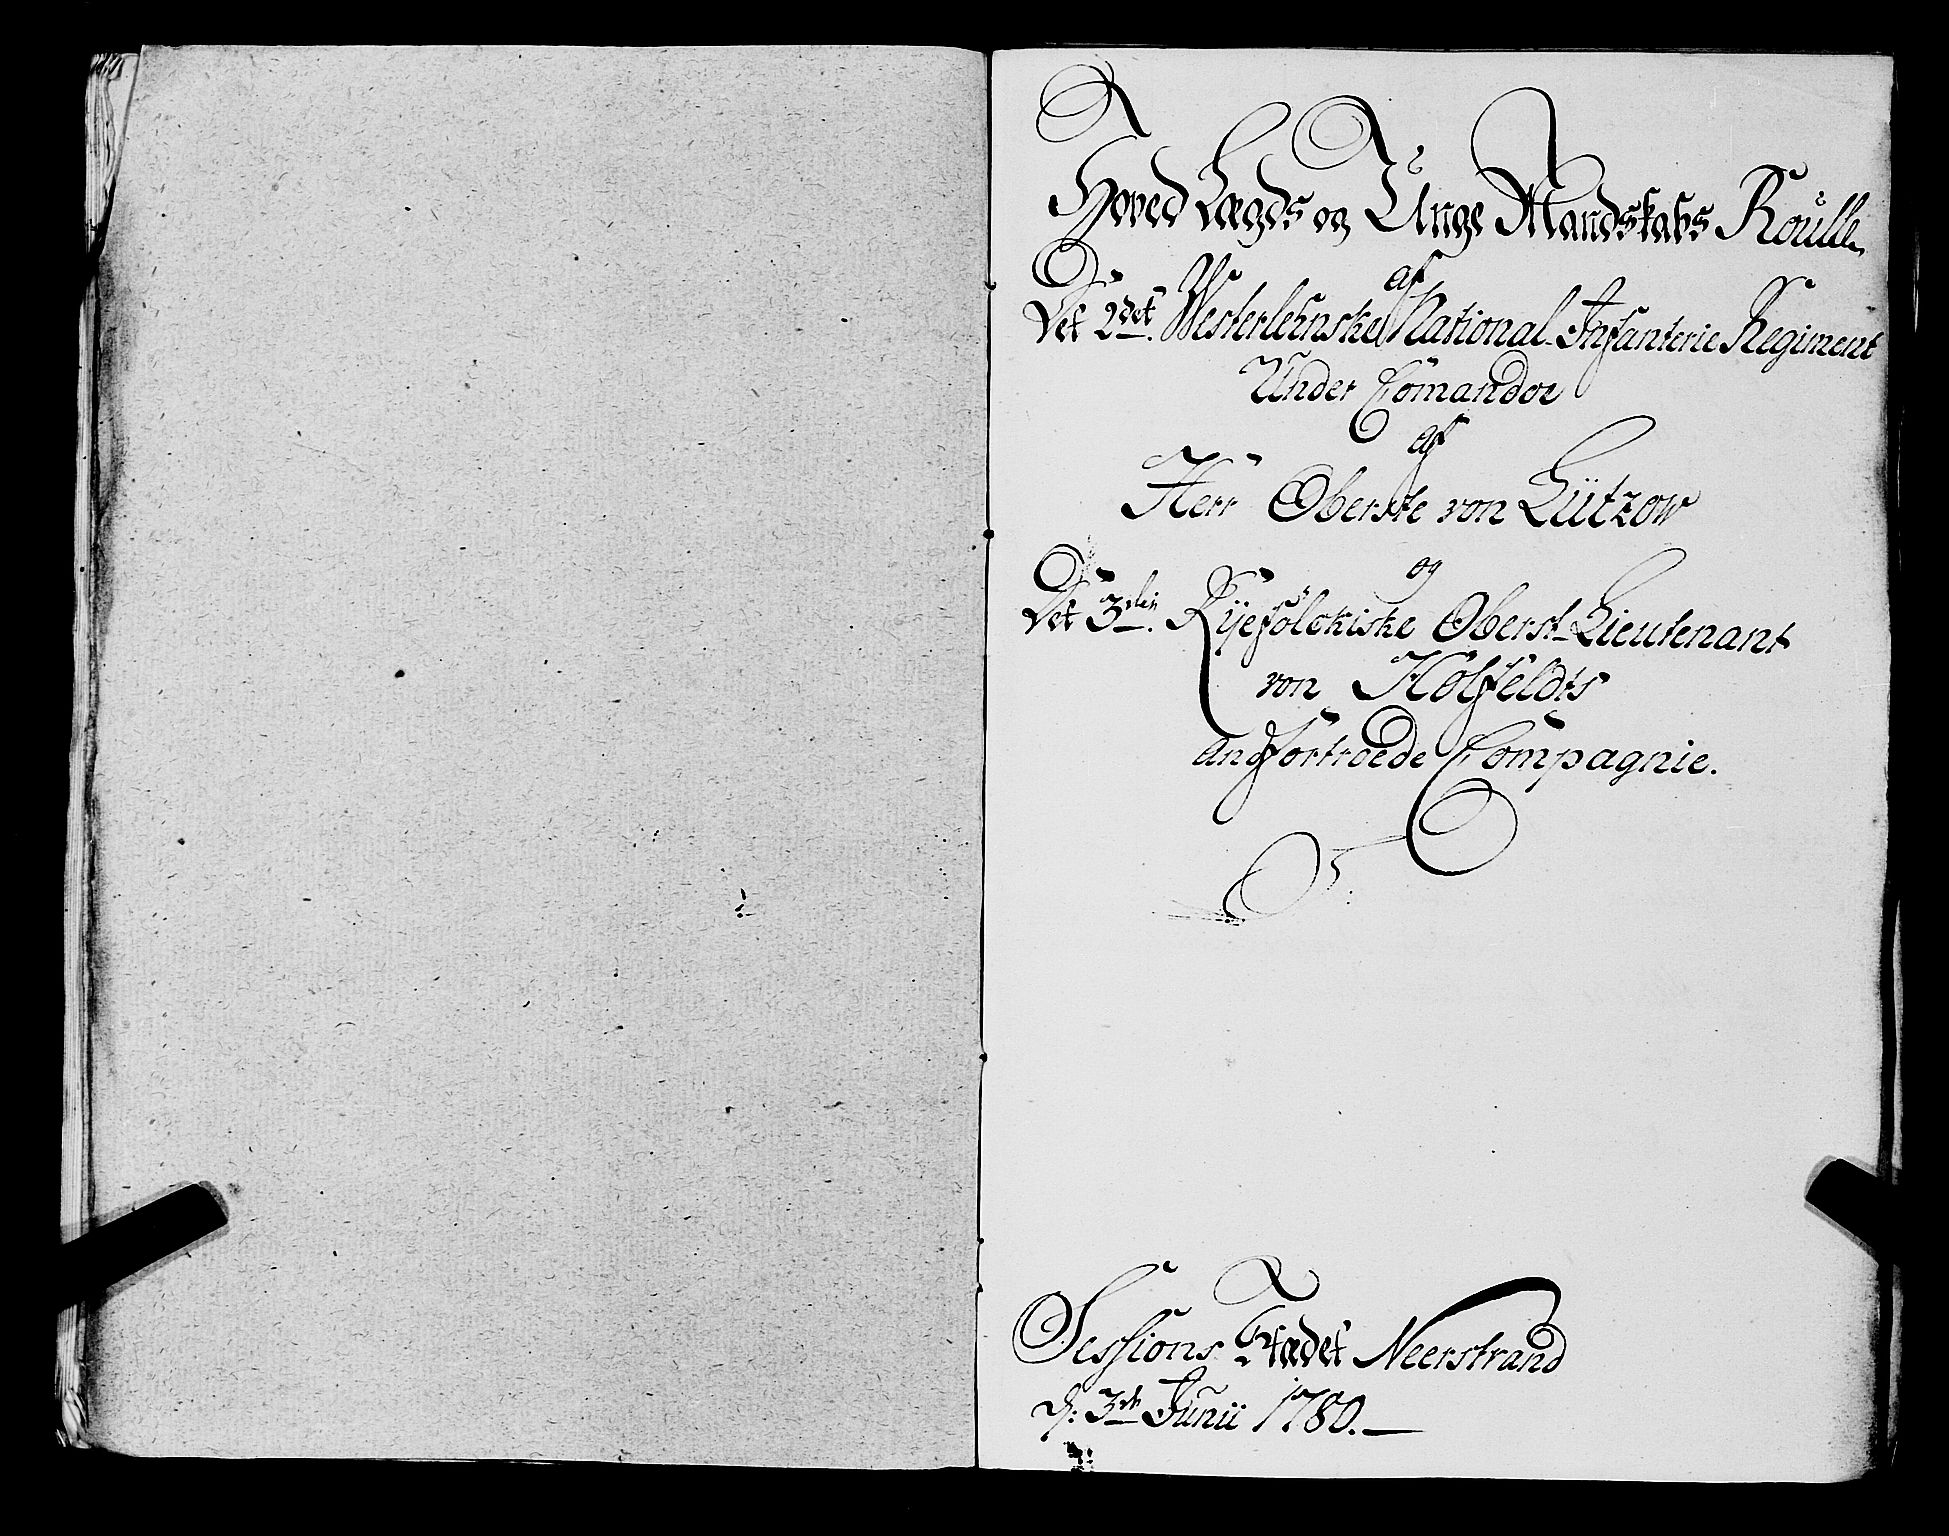 Hoved Lægds og Unge Mandskabs Roulle
af
Det 2det Westerlehnske National Infanterie Regiment
Under Comandoe
af
Herr Oberste von Lützow
og
Det 3die Ryefölckiske Oberst Lieutenant
von Holfeldts
Anfortroede Compagnie.
Sessions Stædet Neerstrand
d: 3de Junii 1780.